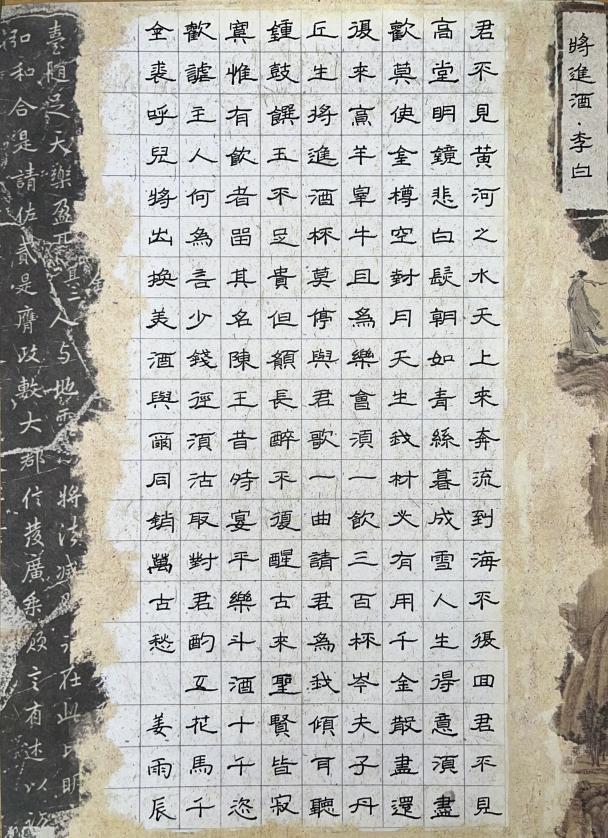 將進酒·李白
君不見黃河之水天上來奔流到海不復回君不見
高堂明鏡悲白髮朝如青絲暮成雪人生得意須盡
歡莫使金樽空對月天生我材必有用千金散盡還
復來烹羊宰牛且為樂會須一飲三百杯岑夫子丹
丘生將進酒杯莫停與君歌一曲請君為我傾耳聽
鍾鼓饌玉不足貴但願長醉不復醒古來聖賢皆寂
寞惟有飲者留其名陳王昔時宴平樂斗酒十千恣
歡謔主人何為言少錢徑須沽取對君酌五花馬千
金裘呼兒將出換美酒與爾同銷萬古愁
姜雨辰
足天樂盈 其二 人与地 將法 在此 明
和合是請佐貳是膺政數大郡信茂廣 言有述以